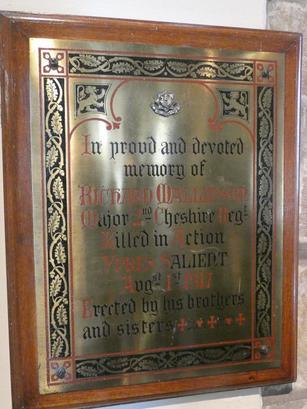 In proud and devoted
memory of
RICHARD
Major 2nd Cheshire Regt
Killed in Action
YPRES SALIENT
Augst 1st 1917
Erected by his brothers
and sisters